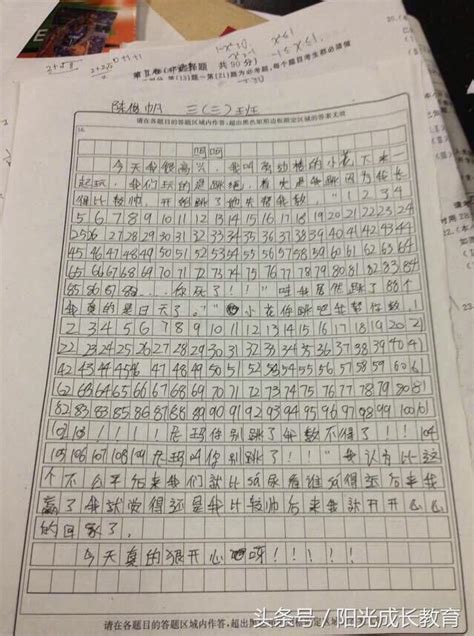 第Ⅱ卷（非选择题 共90分）
第(13)题~第(21)题为必考题,每个题目考生都必须做
三（二）班
请在各题目的答题区域内作答,超出黑色矩形边框限定区域的答案无效
呵呵
今天我很高兴，我叫楼的小花下来一
起玩，我们玩的是跳绳，首先是我跳因为我长
得比较帅，开始跳了她先帮我数，“1 2 3 4
5 6 7 8 9 10 11 12 13 14 15 16 17 18 19 20 21 22 23 24
25 26 27 28 29 30 31 32 33 34 35 36 37 38 39 40 41 42 43 44
45 46 47 48 49 50 51 52 53 54 55 56 57 58 59 60 61 62 63 64
65 66 67 68 69 70 71 72 73 74 75 76 77 78 79 80 81 82 83 84
85 86 87 88……你死了！！”哇我居然跳了88个
我真的是日天了。”小花你跳吧我帮你数，1
2 3 4 5 6 7 8 9 10 11 12 13 14 15 16 17 18 19 20 21
22 23 24 25 26 27 28 29 30 31 32 33 34 35 36 37 38 39 40 41
42 43 44 45 46 47 48 49 50 51 52 53 54 55 56 57 58 59 60 61
62 63 64 65 66 67 68 69 70 71 72 73 74 75 76 77 78 79 80 81
82 83 84 85 86 87 88 89 90 91 92 93 94 95 96 97 98 99 100 101
102 103！！！！尼玛你别跳了我数不得了！！！104
105 106 107 108 109 尼玛叫你别跳了！！！”我认为比这
个不公平后来我们就比谁尿尿谁尿得远后来我
赢了我就觉得还是我比较帅后来我就开开心心
的回家了。
今天真的狠开心呀！！！！！
请在各题目的答题区域内作答,超出黑色矩形边框限定区域
头条号／阳光成长教育